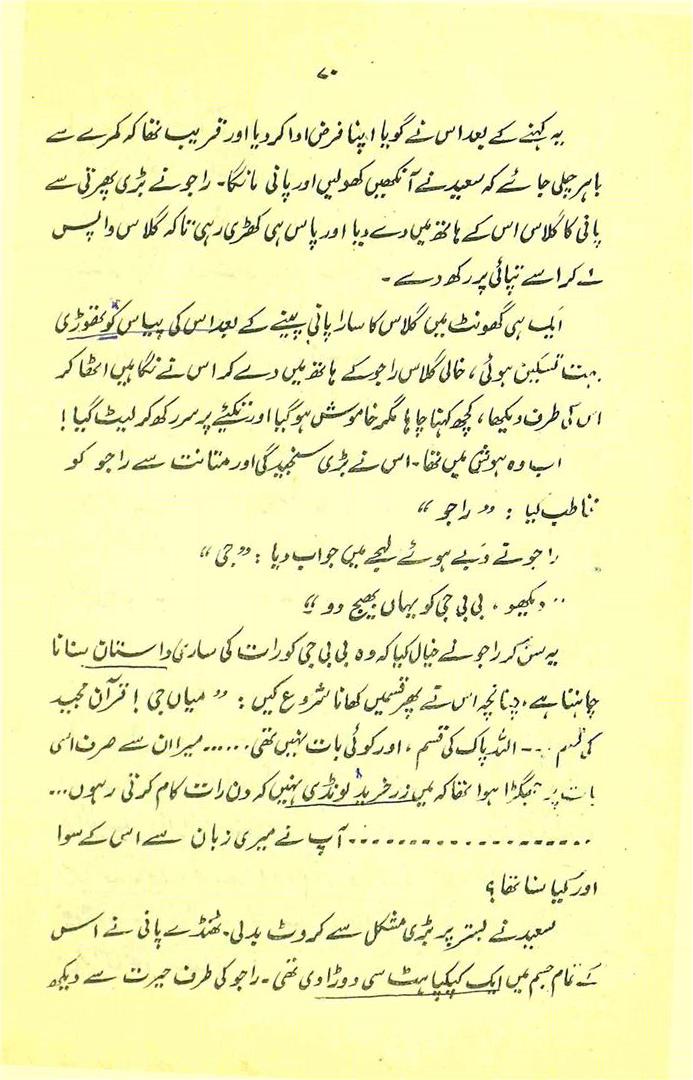 ۷۰
یہ کہنے کے بعد اس نے گویا اپنا فرض ادا کر دیا اور قریب تھا کہ کمرے سے
باہر چلی جائے کہ سعید نے آنکھیں کھولیں اور پانی مانگا۔ راجو نے بڑی پھرتی سے
پانی کا گلاس اس کے ہاتھ میں دے دیا اور پاس ہی کھڑی رہی تاکہ گلاس واپس
لے کر اسے تپائی پر رکھ دے ۔
ایک ہی گھونٹ میں گلاس کا سارا پانی پینے کے بعد اس کی پیاس کو تھوڑی
بہت تسکین ہوئی، خالی گلاس راجو کے ہاتھ میں دے کر اس نے نگاہیں اٹھا کر
اس کی طرف دیکھا، کچھ کہنا چاہا مگر خاموش ہو گیا اور تکیئے پر سر رکھ کر لیٹ گیا!
اب وہ ہوش میں تھا۔ اس نے بڑی سنجیدگی اور متانت سے راجو کو
مخاطب کیا : ”راجو“
راجو نے دَبے ہوئے لہجے میں جواب دیا : ”جی“
”دیکھو، بی بی جی کو یہاں بھیج دو“
یہ سن کر راجو نے خیال کیا کہ وہ بی بی جی کو رات کی ساری داستان سنانا
چاہتا ہے، چنانچہ اس نے پھر قسمیں کھانا شروع کیں : ”میاں جی! قرآن مجید
کی قسم ۔۔۔ اللہ پاک کی قسم، اور کوئی بات نہیں تھی ...... میرا ان سے صرف اسی
بات پر جھگڑا ہوا تھا کہ میں زر خرید لونڈی نہیں کہ دن رات کام کرتی رہوں...
.................... آپ نے میری زبان سے اس کے سوا
اور کیا سنا تھا؟
سعید نے بستر پر بڑی مشکل سے کروٹ بدلی۔ ٹھنڈے پانی نے اس
کے تمام جسم میں ایک کپکپاہٹ سی دوڑا دی تھی۔ راجو کی طرف حیرت سے دیکھ